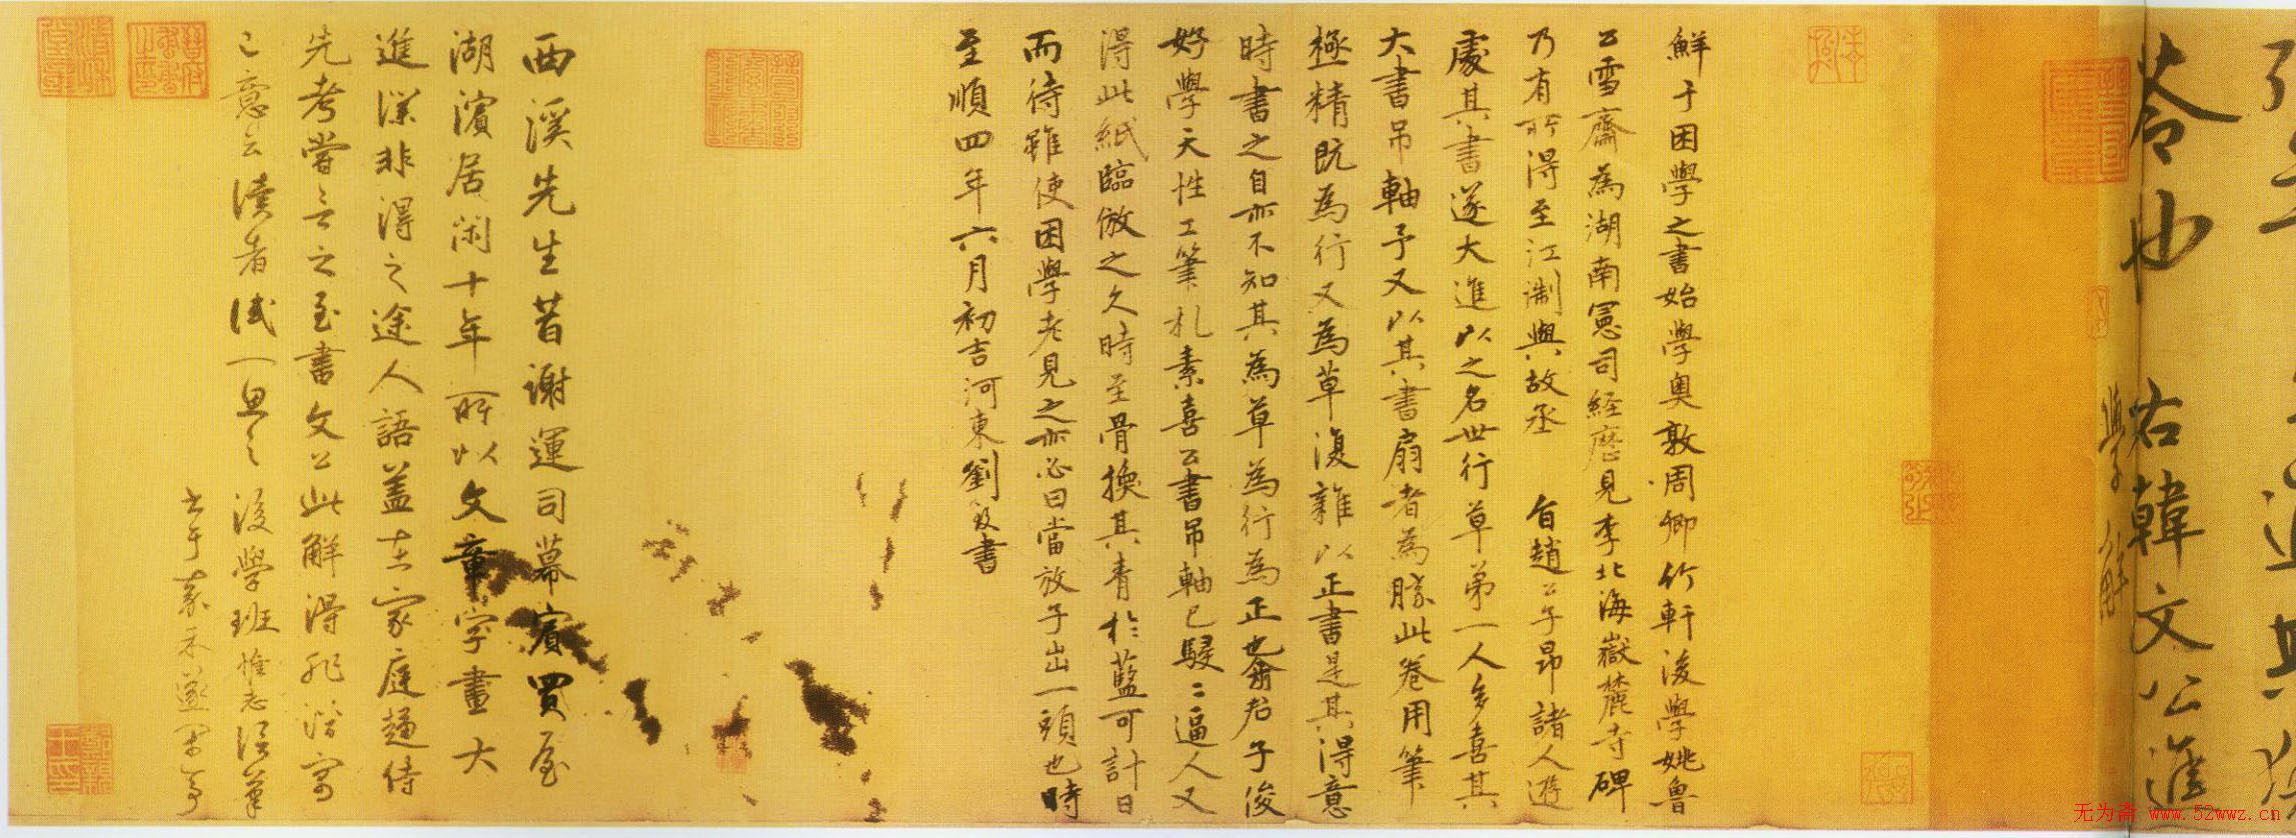 苓也 右韓文公進
學解
鮮于困學之書始學奧敦周卿竹軒後學姚魯
公雪齋為湖南憲司經歷見李北海嶽麓寺碑
乃有所得至江淛與故丞 旨趙公子昂諸人遊
處其書遂大進以之名世行草第一人多喜其
大書吊軸予又以其書扇者為勝此卷用筆
極精既為行又為草復雜以正書是其得意
時書之自亦不知其為草為行為正也俞君子俊
好學天性工筆札素喜公書吊軸已駸二逼人又
得此紙臨倣之久時至骨換其青於藍可計日
而待雖使困學老見之亦必曰當放子出一頭也時
至順四年六月初吉河東劉致書
西溪先生昔謝運司幕賓買屋
湖濱居閑十年所以文章字畫大
進深非得之途人語蓋在家庭趨侍
先考嘗言之至書文公此解得非潛寓
二意云讀者試一思之 後學班惟志泚筆
无为斋 www.52wwz.cn